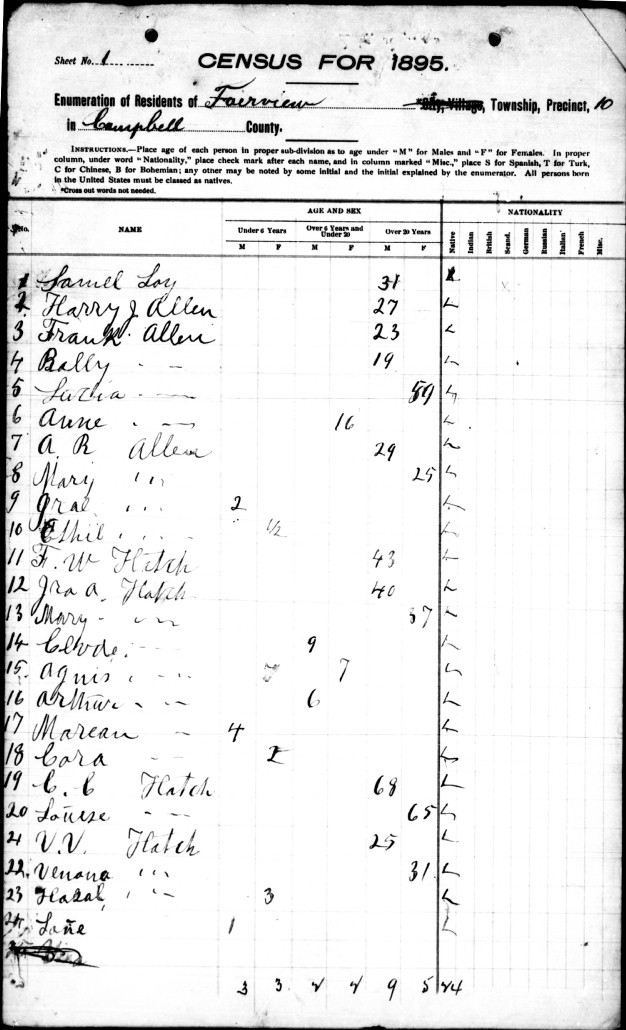 Sheet No. 1
CENSUS FOR 1895.
Enumeration of Residents of Fairview *City, Village, Township, Precinct, 10
in Campbell County.
INSTRUCTIONS.—Place age of each person in proper sub-division as to age under "M" for Males and "F" for Females. In proper
column, under word "Nationality," place check mark after each name, and in column marked "Misc.," place S for Spanish, T for Turk,
C for Chinese, B for Bohemian; any other may be noted by some initial and the initial explained by the enumerator. All persons born
in the United States must be classed as natives.
*Cross out words not needed.
No. NAME AGE AND SEX NATIONALITY
Under 6 Years Over 6 Years and Under 20 Over 20 Years
M F M F M F
Native Indian British Scand. German Russian Italian French Misc.
1 Samel Loy 31
2 Harry J Allen 27
3 Frank Allen 23
4 Bally - - 19
5 59
6 Anne - - 16
7 A R Allen 29
8 Mary " " 25
9 2
10 Ethil 1/2
11 F. W Hatch 43
12 Jra A. Hatch 40
13 Mary - 37
14 Clyde 9
15 Agnis 7
16 Arthur - - 6
17 Marean - 4
18 Cora - - 2
19 C. C Hatch 68
20 Louise - - 65
21 V. V. Hatch 25
22 Venona " " 31
23 Hazal " 3
24 1
3 3 4 4 9 5 24